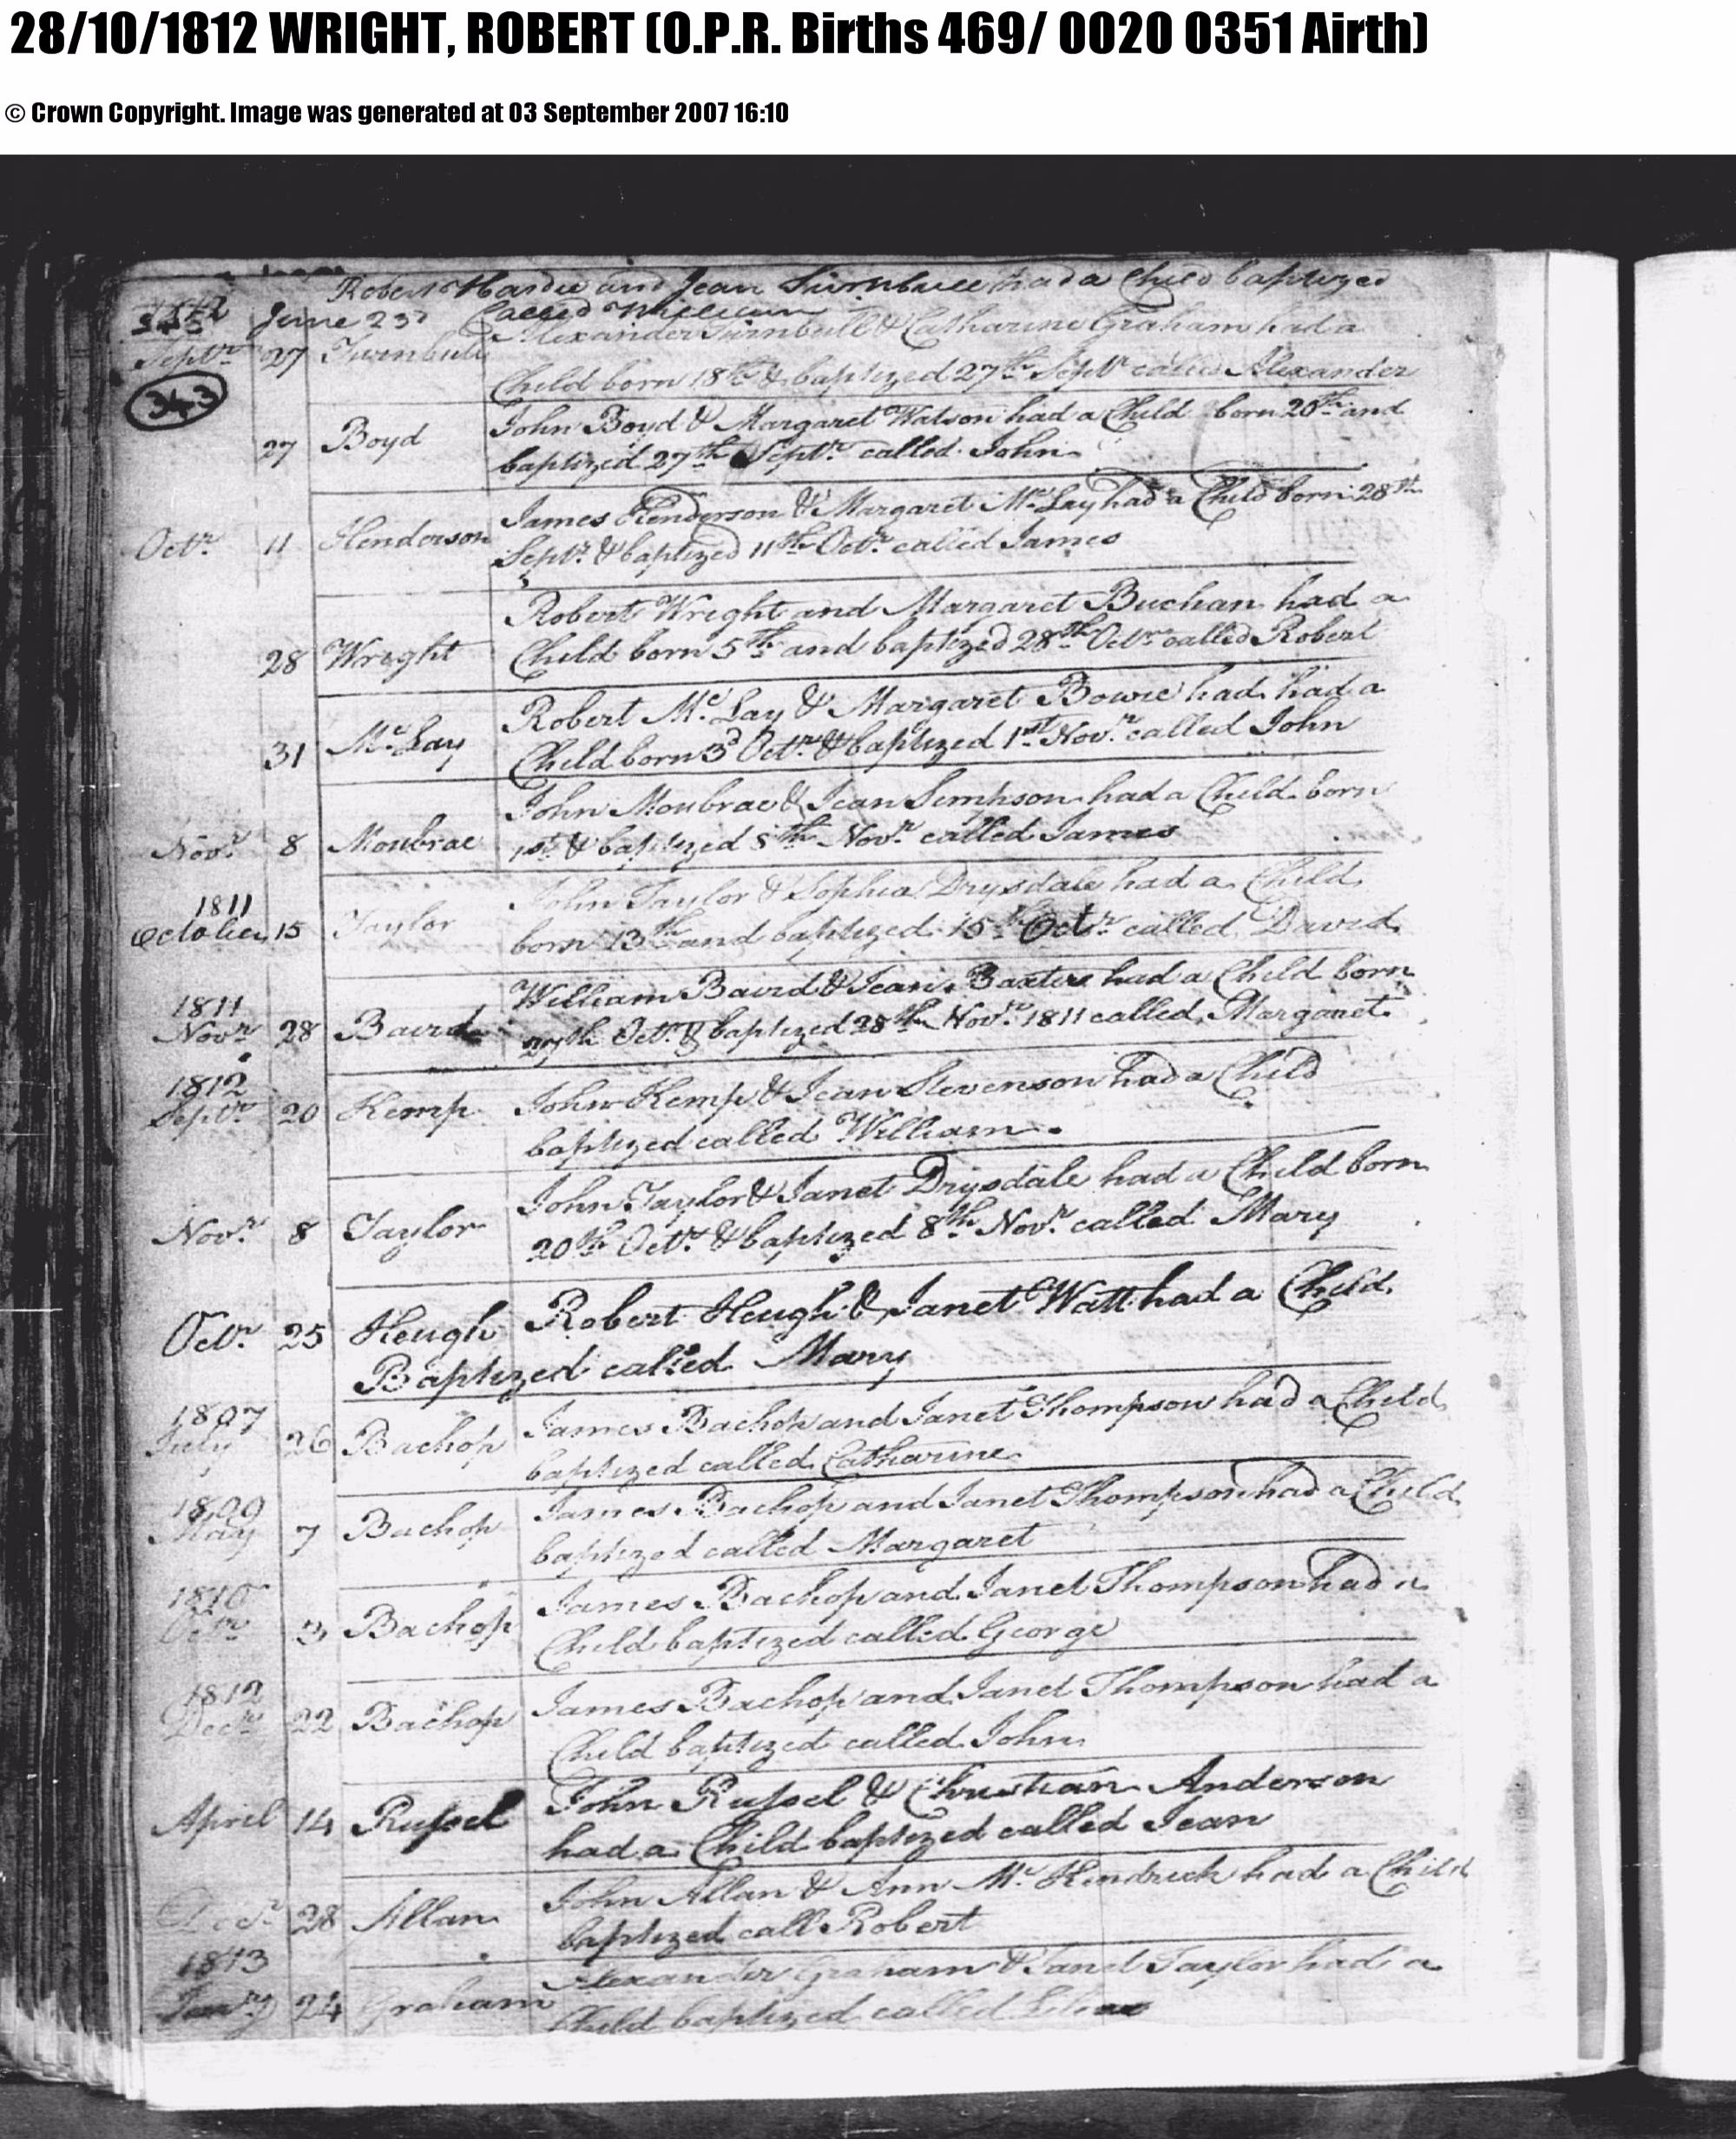 28/10/1812 WRIGHT, ROBERT (O.P.R. Births 469/ 0020 0351 Airth)
© Crown Copyright. Image was generated at 03 September 2007 16:10
Robert Hardie and Jean Turnbull had a Child baptized
1812 June 23d Called William
Alexander Turnbull & Catharine Graham had a
Septr. 27 Turnbull
Child born 18th & baptized 27th Septr called Alexander
343
John Boyd & Margaret Watson had a Child born 20th and
27 Boyd baptized 27th Septr. called John
James Henderson & Margaret Mc.Lay had a Child born 28th
Octr. 11 Henderson Septr. & baptized 11th Octr. called James
Robert Wright and Margaret Buchan had a
28 Wright Child born 5th and baptized 28th Octr. called Robert
Robert Mc.Lay & Margaret Bowie had had a
31 Mc.Lay Child born 3d Octr. & baptized 1st Novr. called John
John Moubrae & Jean Simpson had a Child born
Novr. 8 Moubrae 1st & baptized 8th Novr. called James
1811 John Taylor & Sophia Drysdale had a Child
October 15 Taylor born 13th and baptized 15th Octr. called David
1811 William Baird & Jean Baxter had a Child born
Novr 28 Baird 27th Octr. & baptized 28th Novr. 1811 called Margaret
1812
Septr. 20 Kemp John Kemp & Jean Stevenson had a Child
baptized called William
John Taylor & Janet Drysdale had a Child born
Novr. 8 Taylor 20th Octr. & baptized 8th Novr. called Mary
Octr. 25 Heugh Robert Heugh & Janet Watt had a Child
Baptized called Mary
1807 James Bachop and Janet Thompson had a Child
July 26 Bachop baptized called Catharine
1809 James Bachop and Janet Thompson had a Child
May 7 Bachop baptized called Margaret
1810 James Bachop and Janet Thompson had a
Octr. 3 Bachop Child baptized called George
1812 James Bachop and Janet Thompson had a
Decr. 22 Bachop Child baptized called John
John Russel & Christian Anderson
April 14 Russel had a Child baptized called Jean
John Allan & Ann Mc.Kendrick had a Child
Decr. 28 Allan baptized call Robert
1813 Alexander Graham & Janet Taylor had a
Janry 24 Graham Child baptized called